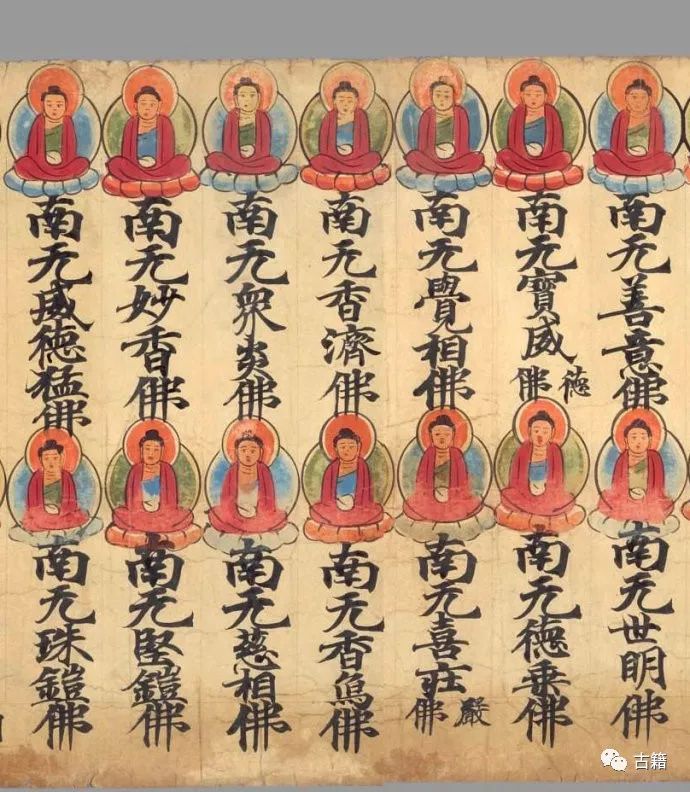 南无善意佛
南无世明佛
南无寶威德佛
南无德乘佛
南无覺相佛
南无喜莊嚴佛
南无香濟佛
南无香象佛
南无衆炎佛
南无慈相佛
南无妙香佛
南无堅鎧佛
南无威德猛佛
南无珠鎧佛
古籍